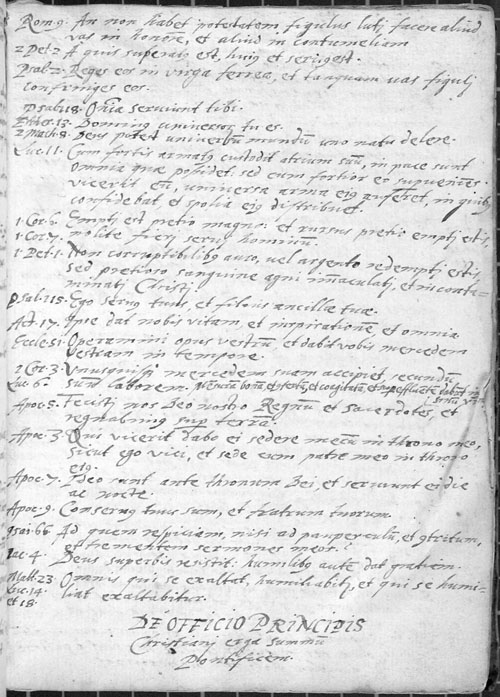 Rom. 9. An non habet potestatem figulus luti, facere aliud
vas in honorē, et aliud in contumeliam
2 Pet. 2. A quo superatꝰ est, huiꝰ et seruꝰ est.
Psal. 2. Reges eos in virga ferrea, et tanquam uas figuli
confringes eos.
Psal. 118. Oīa seruiunt tibi.
Esther. 13. Dominus uniuersorū tu es.
2 Mach. 8. Deus potest uniuersum mundū uno nutu delere.
Luc. 11. Cum fortis armatꝰ custodit atrium suū, in pace sunt
omnia quæ possidet. sed cum fortior eo superueniēs
vicerit eū, uniuersa arma eiꝰ auferet, in quibꝰ
confidebat, et spolia eiꝰ distribuet.
1. Cor. 6. Empti est pretio magno. et rursus pretio empti estis,
1. Cor. 7. nolite fieri serui hominum.
1. Pet. 1. Non corruptibilibꝰ auro, vel argento redempti estis
sed pretioso sanguine agni immaculati, et incōta-
minati Christi.
Psal. 115. Ego seruꝰ tuus, et filius ancillæ tuæ.
Act. 17. Ipse dat nobis vitam, et inspirationē, et omnia
Eccle. 51. Operamini opus vestrū, et dabit vobis mercedem
vestram in tempore.
1 Cor. 3. Vnusquisq mercedem suam accipiet, secundū
Luc. 6. suū laborem. Mensurā bonā, et
Apoc. 5. Fecisti nos Deo nostro Regnū et sacerdotes, et
regnabimꝰ sup terrā.
Apoc. 3. Qui vicerit dabo ei sedere mecū in throno meo,
sicut ego vici, et sede cum patre meo in throno
eiꝰ.
Apoc. 7. Ideo sunt ante thronum Dei, et seruiunt ei die
ac nocte.
Apoc. 9. Conseruꝰ tuus sum, et fratrum tuorum.
Isai. 66. Ad quem respiciam, nisi ad pauperculū, et cōtritum,
et trementem sermones meos?
Iac. 4. Deus superbis resistit. humilibꝰ autē dat gratiam.
Matt. 23. Omnis qui se exaltat, humiliabit, et qui se humi-
Luc. 14. liat exaltabitur.
et 18.
DE OFFICIO PRINCIPIS
Christiani erga Summū
Pontificem.